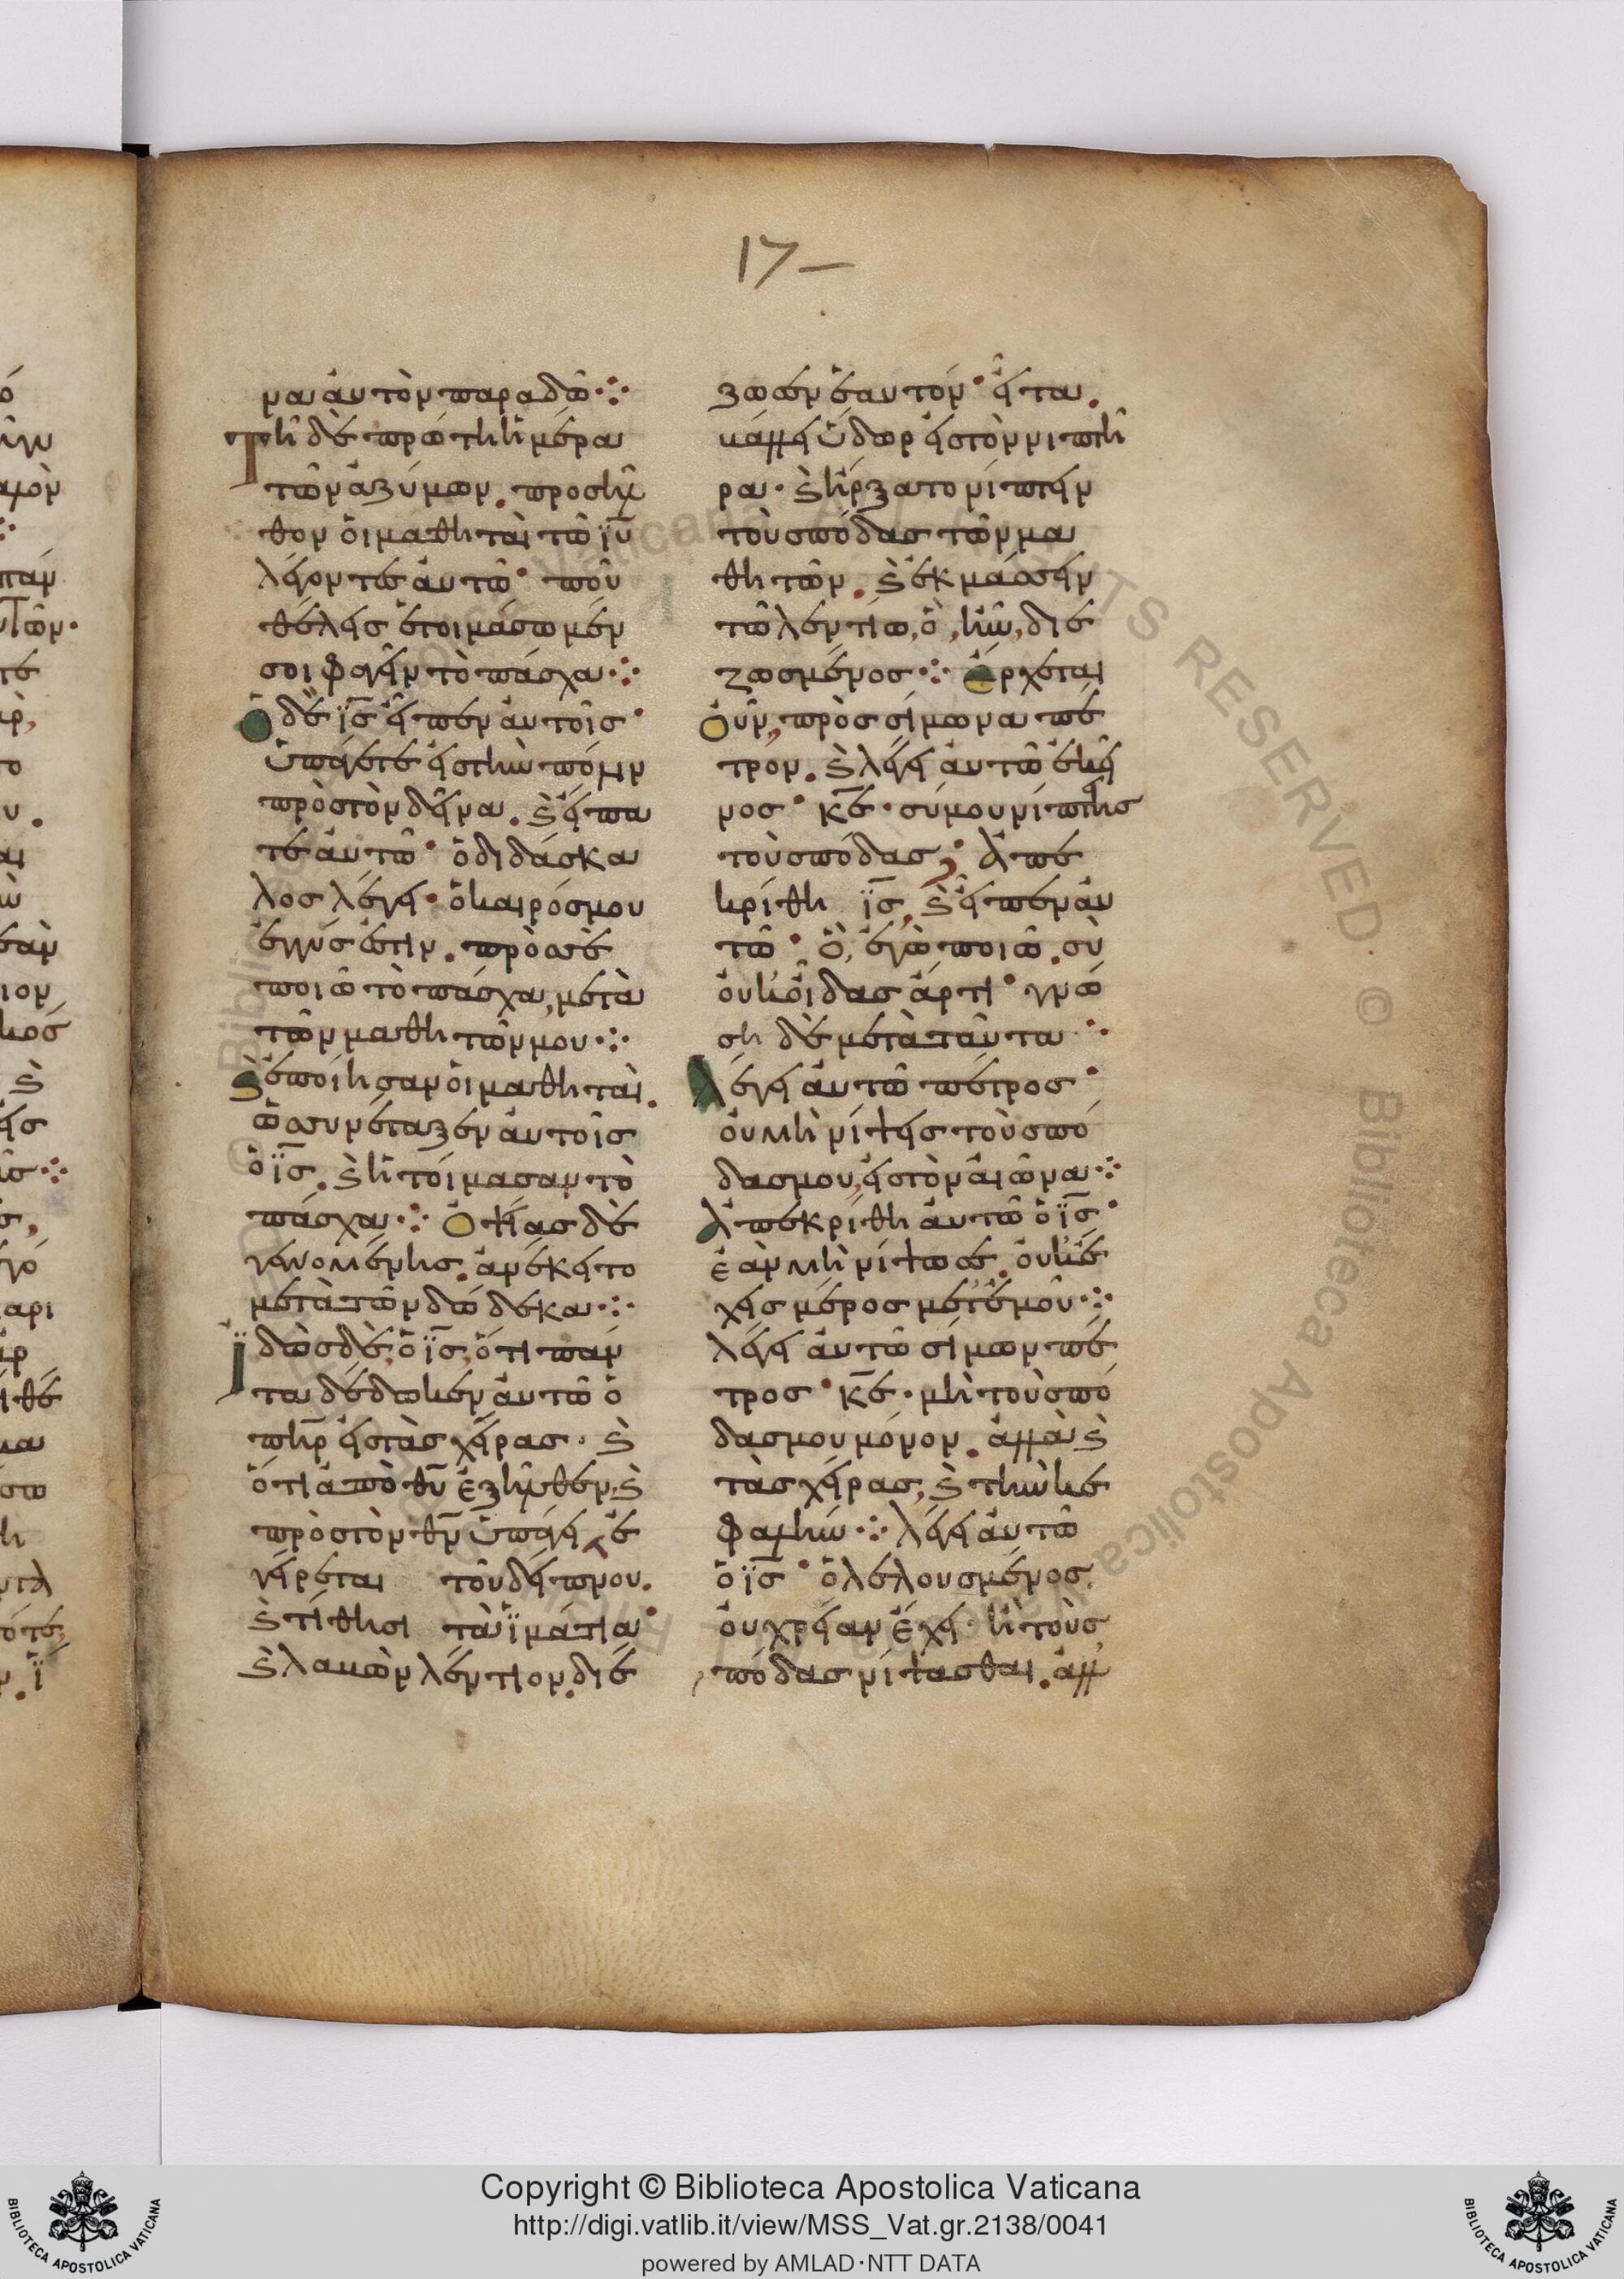 17
να αὐτὸν παραδῶ
Τῆ δὲ πρώτη ἡμέρα
τῶν ἀζύμων. προσῆλ
θον ὁι μαθηταὶ τῶ ἰυ
λέγοντες ἀυτῶ· ποῦ
θέλεις ἑτοιμάσωμέν
σοι φαγεῖν τὸ πάσχα
Ὁ δὲ ἰς εἶπεν ἀυτοῖς·
ὑπάγετε εἰς τὴν πόλιν
πρὸς τὸν δεῖνα. ϗ ἔιπα
τε ἀυτῶ· ὁ διδάσκα
λος λέγει· ὁ καιρόσ μου
ἐγγύς ἐστιν. πρὸσ σὲ
ποιῶ τὸ πάσχα, μετὰ
τῶν μαθητῶν μου
ϗ ἐποίησαν ὁι μαθηταὶ.
ὡσ συνέταξεν ἀυτοῖς
ὁ ἰς. ϗ ἡτοίμασαν τὸ
πάσχα Ὀψίας δὲ
γενομένης. ἀνέκειτο
μετὰ τῶν δώδεκα
Ἰδὼς δὲ, ὁ ἰς, ὅτι πάν
τα δέδωκεν ἀυτῶ ὁ
πηρ εἰς τὰς χεῖρας. ϗ
ὅτι ἀπὸ θυ ἐξῆλθεν. ϗ
πρὸς τὸν θν ὑπάγει, ἐ
γείρεται τοῦ δείπνου.
ϗ τίθησι τὰ ἱμάτια·
ϗ λαβὼν λέντιον. διέ
ζωσεν ἑαυτόν· εἶτα.
βάλλει ὕδωρ εἰς τὸν νιπτῆ
ρα. ϗ ἤρξατο νίπτειν
τοὺς πόδας τῶν μα
θητῶν. ϗ ἐκμάσσειν
τῶ λεντίω, ὧ, ἦν, διε
ζωσμένος Ἔρχεται
ὀυν, πρὸς σίμωνα πέ
τρον. ϗ λέγει ἀυτῶ ἐκεῖ
νος· κε. σύ μου νίπτεις
τοὺς πόδας; Ἀπε
κρίθη ἰς, ϗ εἶπεν ἀυ
τῶ· Ὃ, ἐγὼ ποιῶ. σὺ
ὀυκ ὀῖδας ἄρτι· γνώ
ση δὲ μετὰ ταῦτα
Λέγει ἀυτῶ πέτρος·
ὀυ μὴ νίψεις τοὺς πό
δας μου, εἰς τὸν αἰῶνα
Ἀπεκρίθη ἀυτῶ ὁ ἰς·
ἐὰν μὴ νίψω σέ. ὀυκ ἔ
χεις μέρος μετ ἐμοῦ
λέγει ἀυτῶ σίμων πέ
τρος· κε. μὴ τοὺς πό
δας μου μόνον. ἀλλὰ ϗ
τὰς χεῖρας, ϗ τὴν κε
φαλήν λέγει ἀυτῶ
ὁ ἰς· ὁ λελουσμένος
ὀυ χρείαν ἔχει. ἢ τοὺς
πόδας νίψασθαι. ἀλλ
Copyright © Biblioteca Apostolica Vaticana
http://digi.vatlib.it/view/MSS_Vat.gr.2138/0041
powered by AMLAD·NTT DATA
BIBLIOTECA APOSTOLICA VATICANA
BIBLIOTECA APOSTOLICA VATICANA